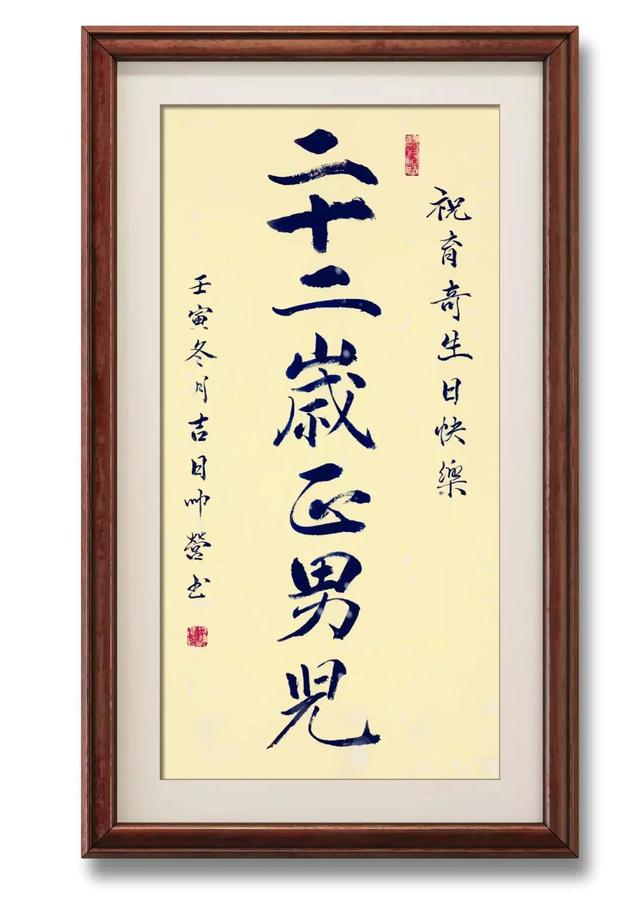 祝育奇生日快樂
二十二歲正男児
壬寅冬月吉日帅營书